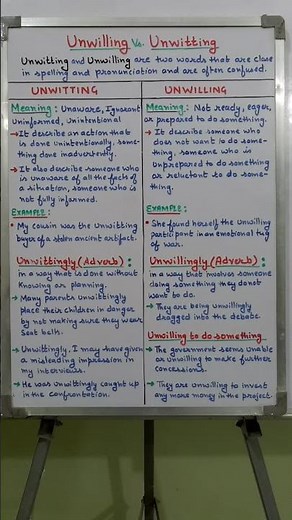 Unwilling Vs. Unwitting
Unwitting and Unwilling are two words that are close
in spelling and pronunciation and are often confused.
UNWITTING
Meaning : Unaware, Ignorant
Uninformed, Unintentional
→ It describe an action that
is done unintentionally, some-
thing done inadvertently.
→ It also describe someone who
is unaware of all the facts of
a situation, someone who is
not fully informed.
EXAMPLE :
• My cousin was the unwitting
buyer of a stolen ancient artifact.
Unwittingly (Adverb) :
in a way that is done without
knowing or planning.
→ Many parents unwittingly
place their children in danger
by not making sure they wear
seat belt.
→ Unwittingly, I may have given
a misleading impression in
my interviews.
→ He was unwittingly caught up
in the confrontation.
UNWILLING
Meaning : Not ready, eager,
or prepared to do something.
→ It describe someone who
does not want to do some-
thing. someone who is
unprepared to do something
or reluctant to do some-
thing.
EXAMPLE :
• She found herself the unwilling
participant in an emotional tug
of war.
Unwillingly (Adverb) :
in a way that involves someone
doing something they do not
want to do.
→ They are being unwillingly
dragged into the debate.
Unwilling to do something
→ The government seems unable
or unwilling to make further
concessions.
→ They are unwilling to invest
any more money in the project.